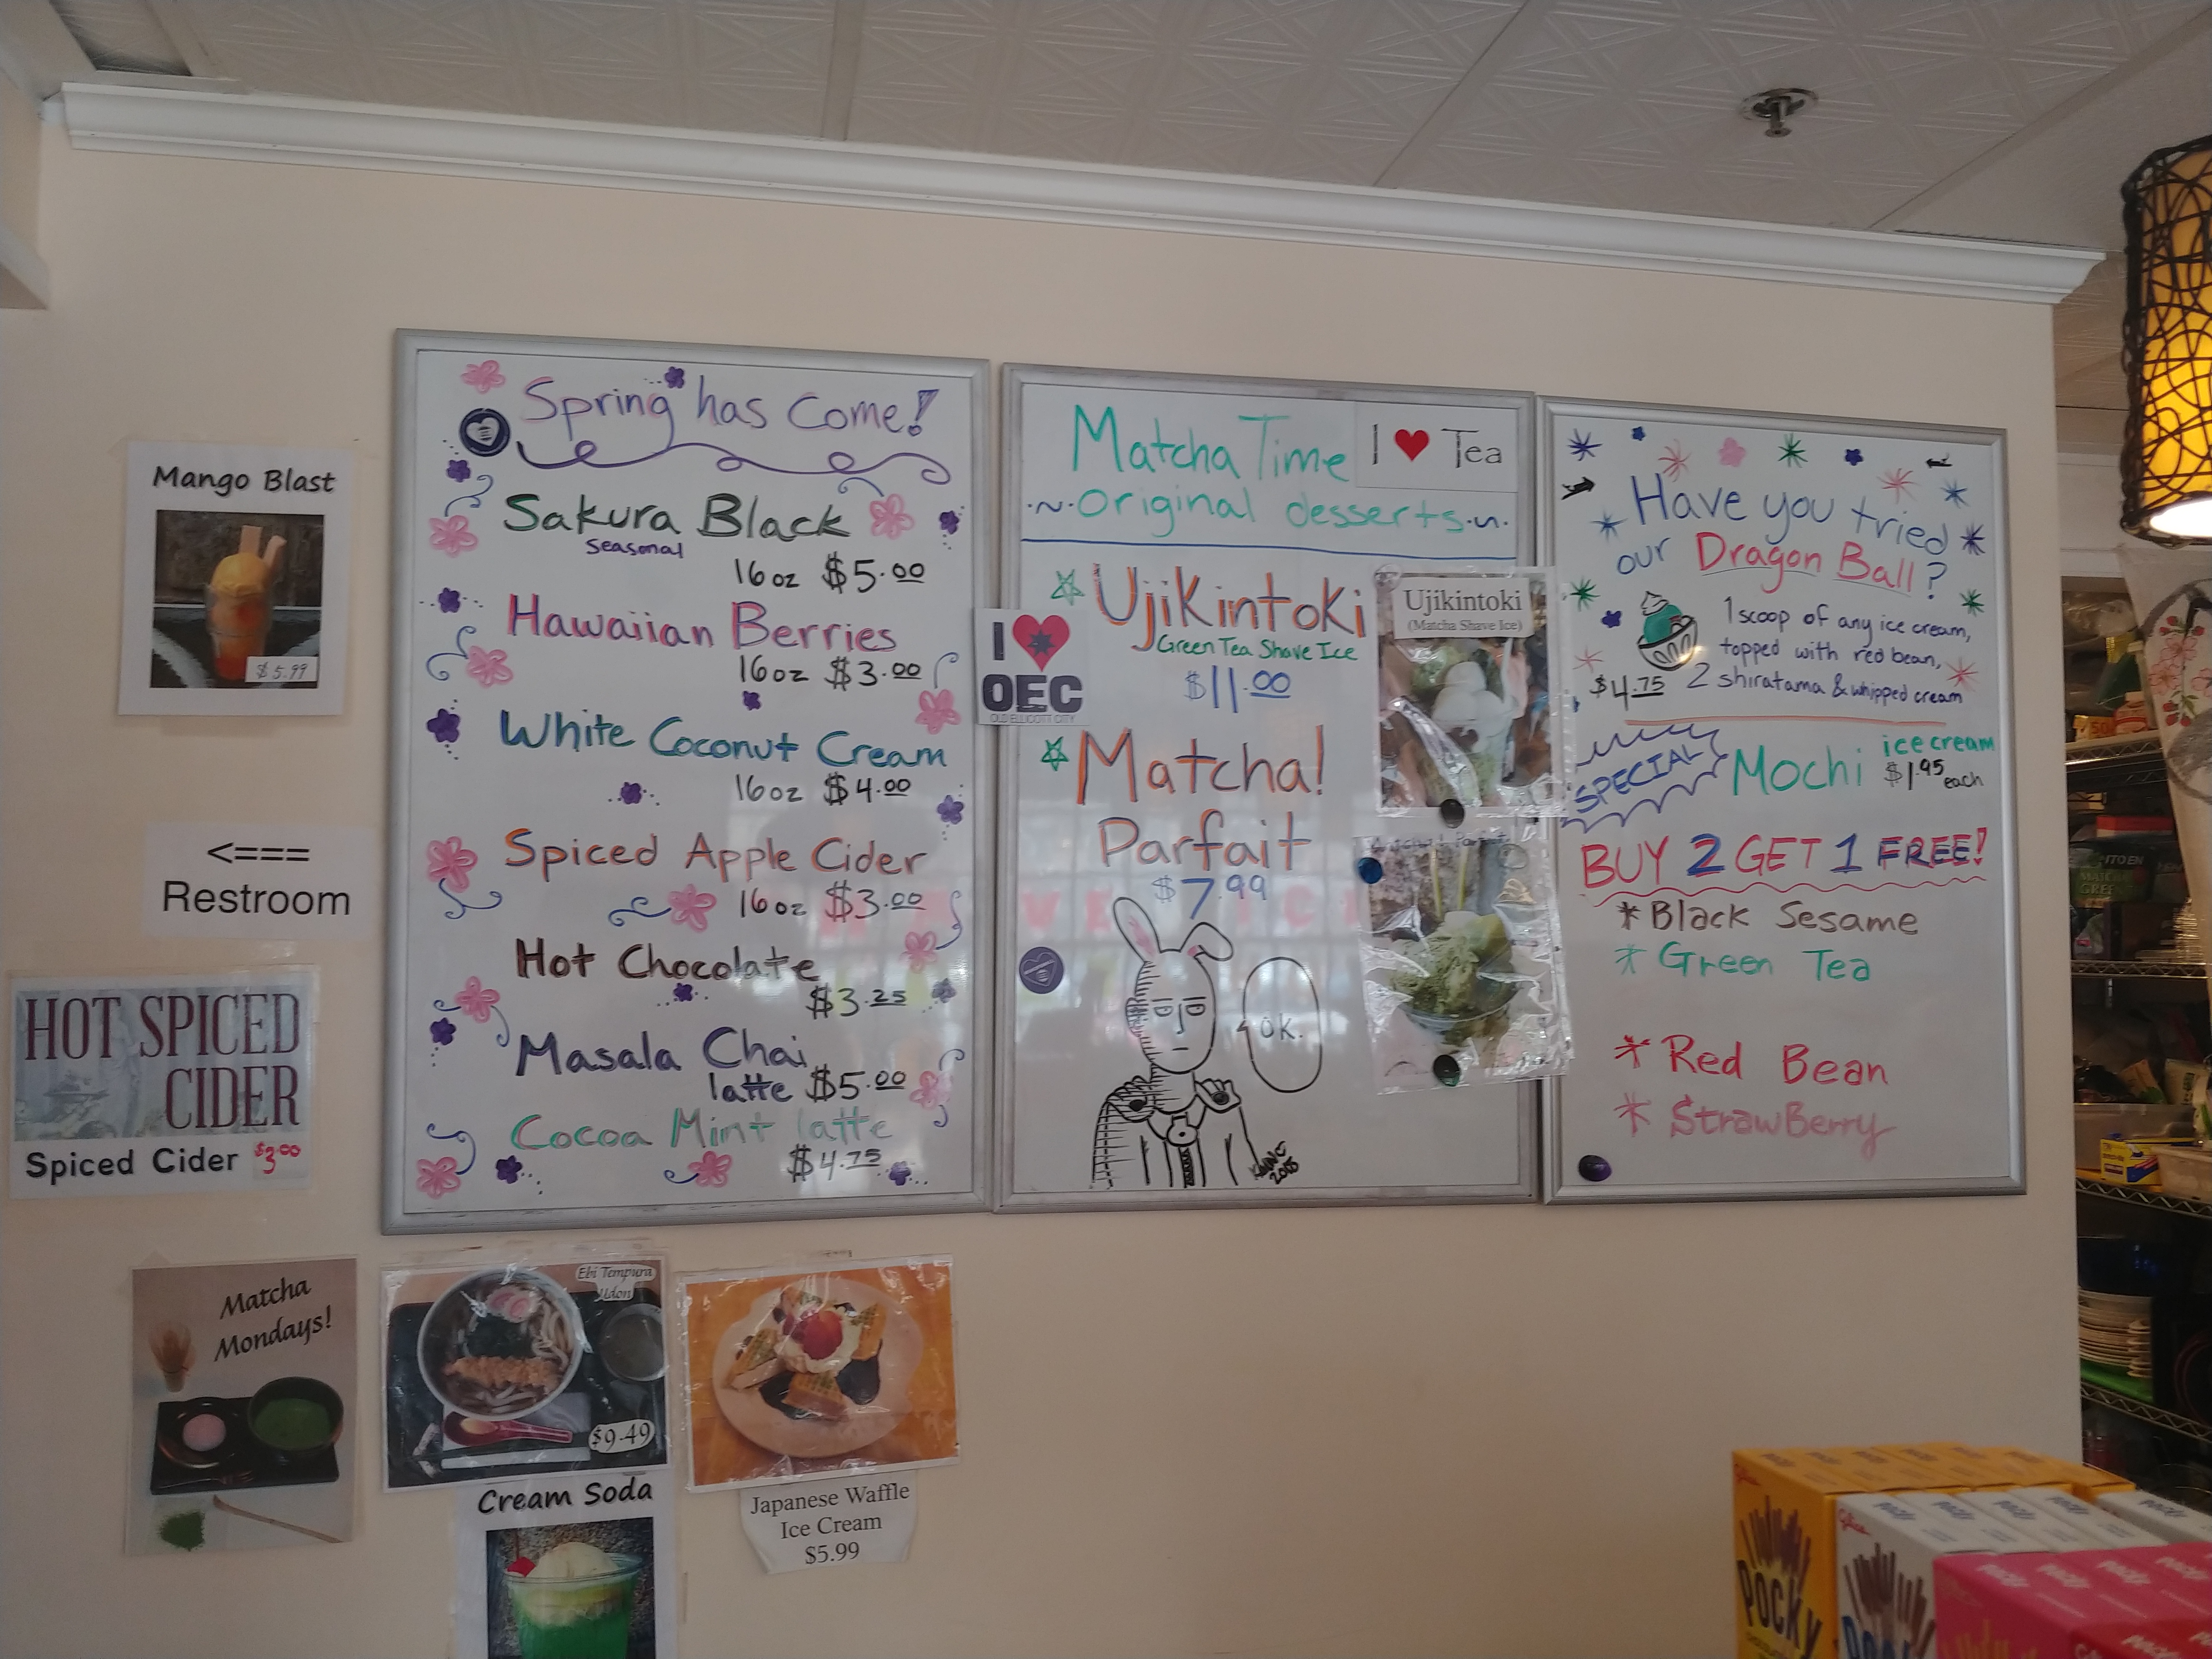 Mango Blast
$5.99
<===
Restroom
HOT SPICED
CIDER
Spiced Cider $3.00
Matcha
Mondays!
Spring has Come!
Sakura Black
Seasonal
16oz $5.00
Hawaiian Berries
16oz $3.00
White Coconut Cream
16oz $4.00
Spiced Apple Cider
16oz $3.00
Hot Chocolate
$3.25
Masala Chai
latte $5.00
Cocoa Mint latte
$4.75
Ebi Tempura
Udon
$9.49
Cream Soda
Japanese Waffle
Ice Cream
$5.99
I ♥ OEC
OLD ELLICOTT CITY
Matcha Time
I ♥ Tea
~Original desserts~
Ujikintoki
Green Tea Shave Ice
$11.00
Ujikintoki
(Matcha Shave Ice)
Matcha!
Parfait
$7.99
OK.
2015
Have you tried
our Dragon Ball?
1 scoop of any ice cream,
topped with red bean,
2 shiratama & whipped cream
$4.75
SPECIAL
Mochi ice cream
$1.95 each
BUY 2 GET 1 FREE!
*Black Sesame
*Green Tea
*Red Bean
*StrawBerry
ITO EN
MATCHA
GREEN
Glico
POCKY
Glico